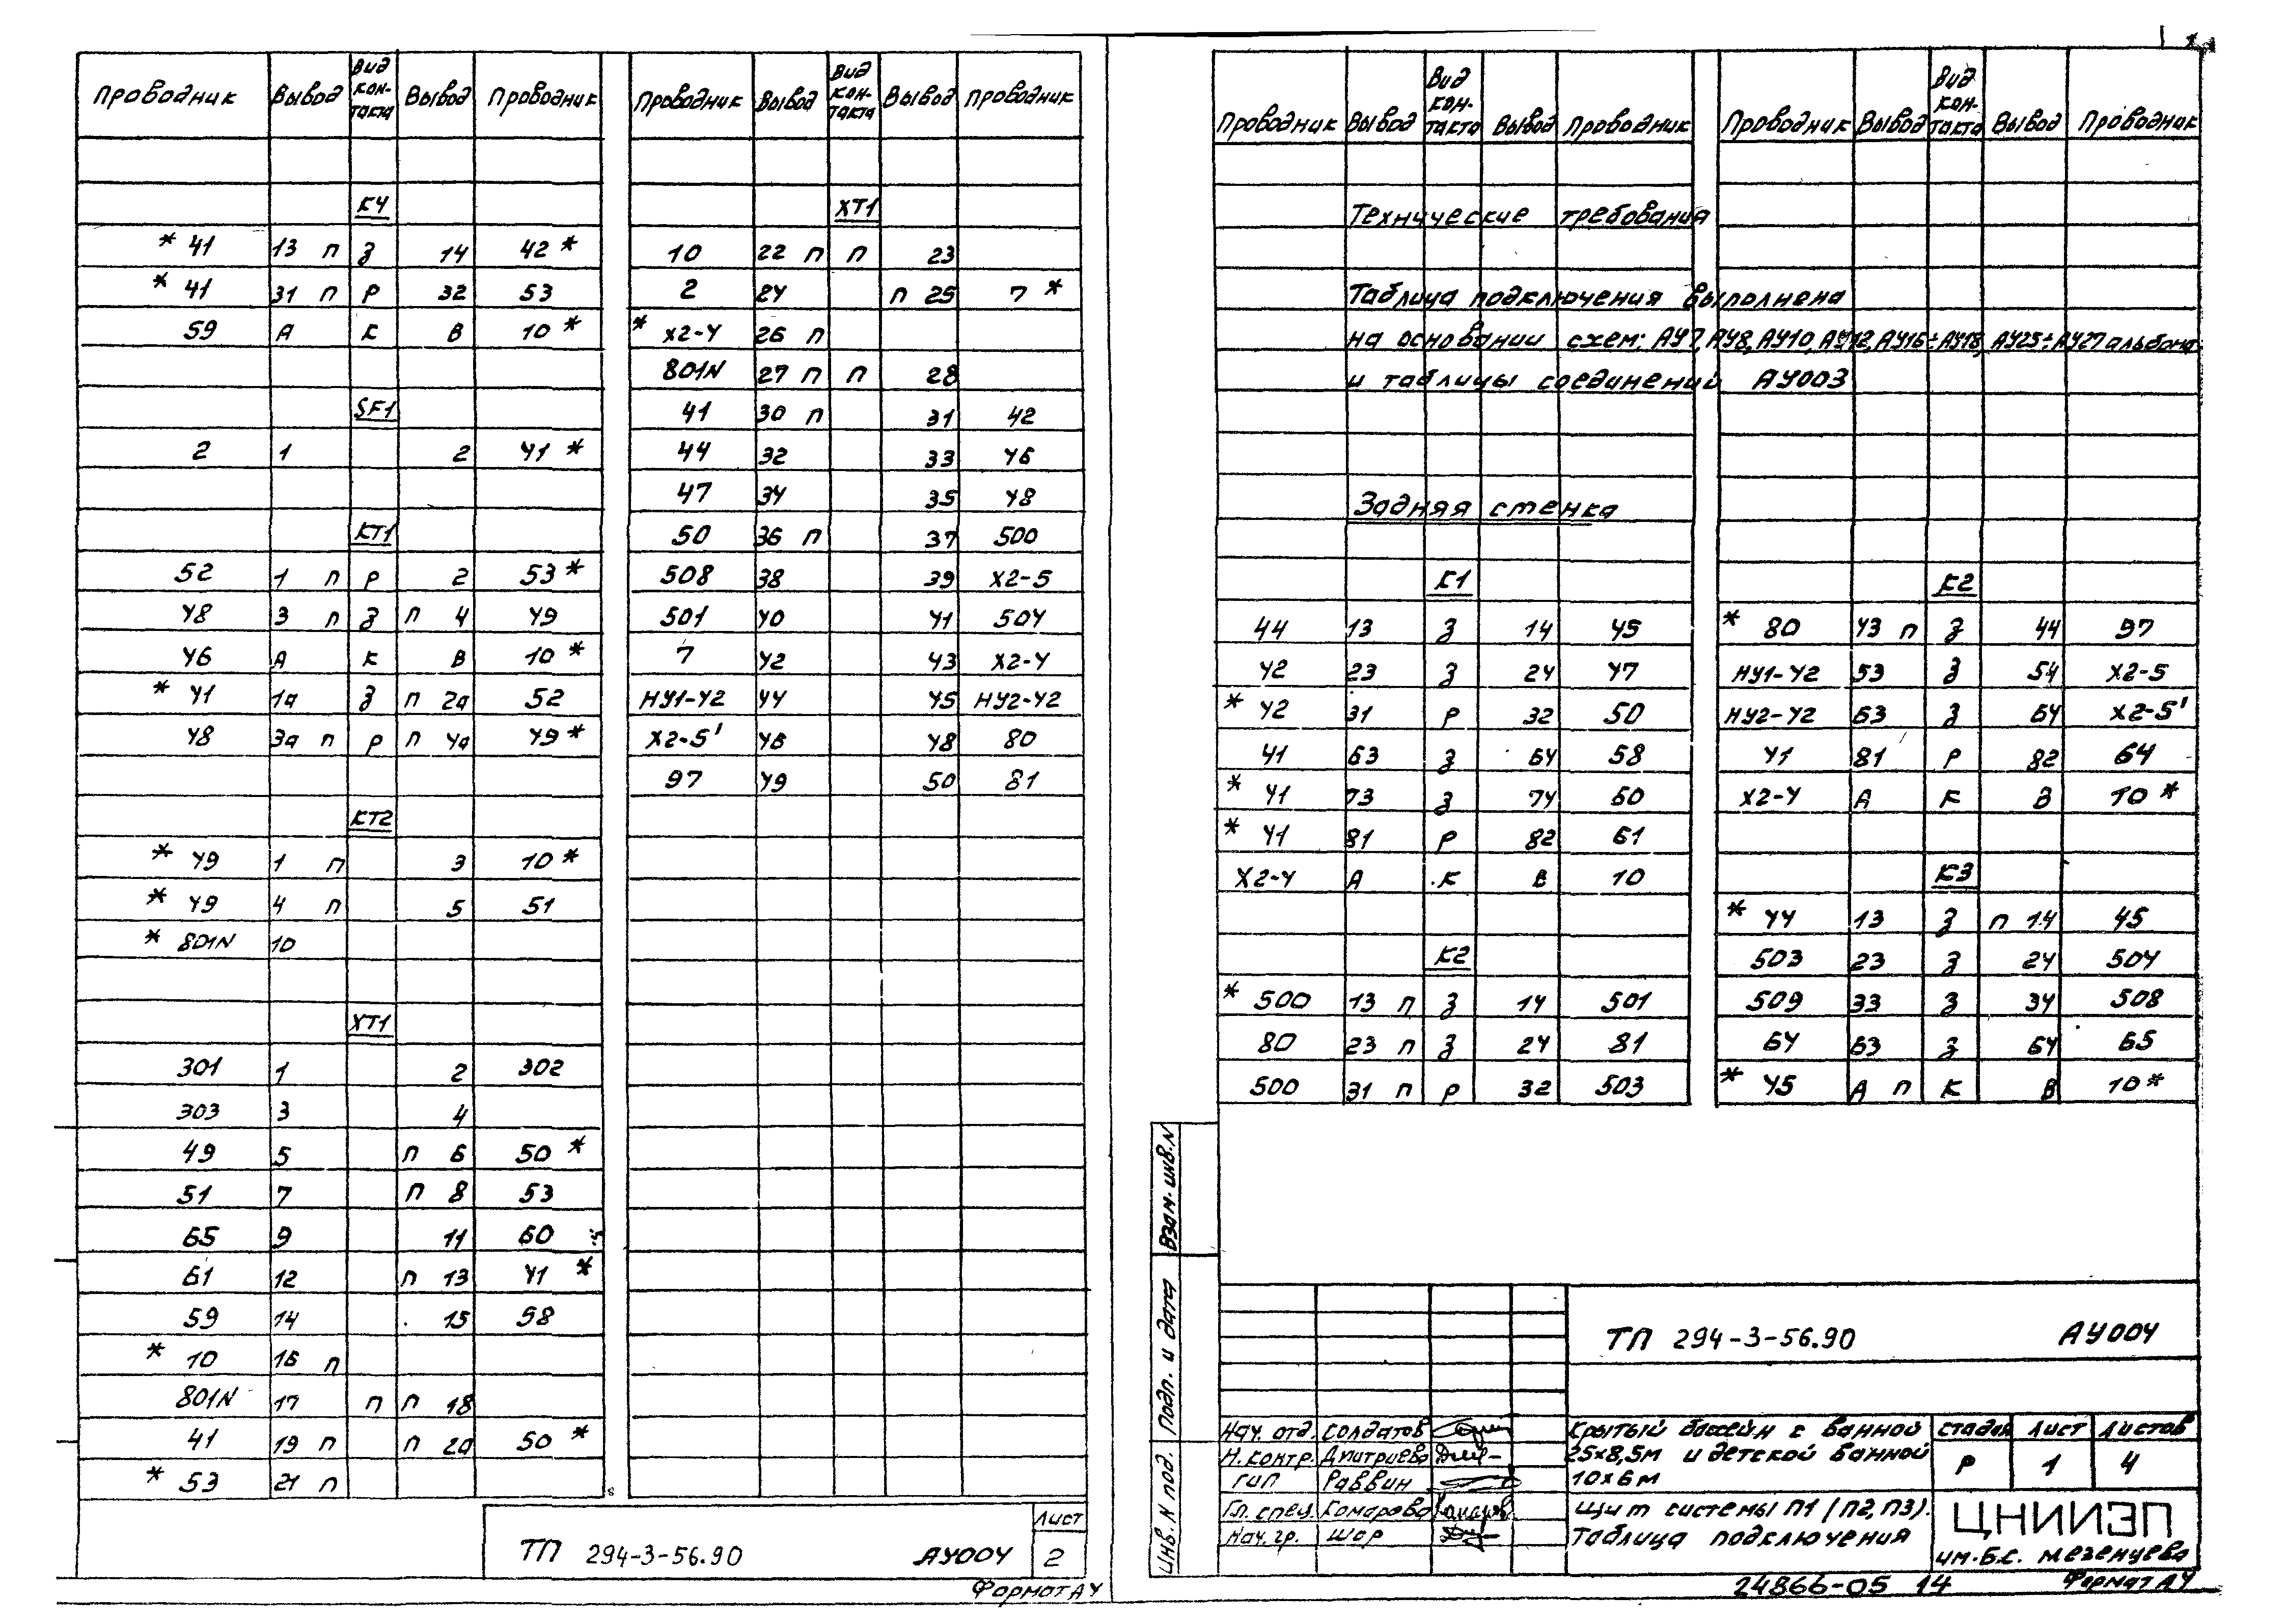 Проводник Вывод Вид контакта Вывод Проводник
К4
* 41 13 п З 14 42 *
* 41 31 п Р 32 53
59 А К В 10 *
SF1
2 1 2 41 *
КТ1
52 1 п Р 2 53 *
48 3 п З п 4 49
46 А К В 10 *
* 41 1а З п 2а 52
48 3а п Р п 4а 49 *
КТ2
* 49 1 п 3 10 *
* 49 4 п 5 51
* 801N 10
ХТ1
301 1 2 302
303 3 4
49 5 п 6 50 *
51 7 п 8 53
65 9 11 60
61 12 п 13 41 *
59 14 15 58
* 10 16 п
801N 17 п п 18
41 19 п п 20 50 *
* 53 21 п
Проводник Вывод Вид контакта Вывод Проводник
ХТ1
10 22 п п 23
2 24 п 25 7 *
* Х2-4 26 п
801N 27 п п 28
41 30 п 31 42
44 32 33 46
47 34 35 48
50 36 п 37 500
508 38 39 Х2-5
501 40 41 504
7 42 43 Х2-4
НУ1-42 44 45 НУ2-42
Х2-5' 46 48 80
97 49 50 81
ТП 294-3-56.90 АУ004
Лист
2
Формат А4
Проводник Вывод Вид контакта Вывод Проводник
Проводник Вывод Вид контакта Вывод Проводник
Технические требования
Таблица подключения выполнена
на основании схем: АУ7, АУ8, АУ10, АУ12, АУ16÷АУ18, АУ25÷АУ27 альбома
и таблицы соединений АУ003
Задняя стенка
К1
44 13 З 14 45
42 23 З 24 47
* 42 31 Р 32 50
41 63 З 64 58
* 41 73 З 74 60
* 41 81 Р 82 61
Х2-4 А К В 10
К2
* 500 13 п З 14 501
80 23 п З 24 81
500 31 п Р 32 503
К2
* 80 43 п З 44 97
НУ1-42 53 З 54 Х2-5
НУ2-42 63 З 64 Х2-5'
41 81 Р 82 64
Х2-4 А К В 10 *
К3
* 44 13 З п 14 45
503 23 З 24 504
509 33 З 34 508
64 63 З 64 65
* 45 А п К В 10 *
Взам. инв. N
Подп. и дата
Инв. N под.
ТП 294-3-56.90 АУ004
Нач. отд. Солдатов
Н. контр. Дмитриева
ГИП Раввин
Гл. спец. Комарова
Нач. гр. Шор
Крытый бассейн с ванной
25х8,5м и детской ванной
10х6м
Стадия Лист Листов
Р 1 4
Щит системы П1 (П2, П3).
Таблица подключения
ЦНИИЭП
им. Б.С. Мезенцева
24866-05 14 Формат А4